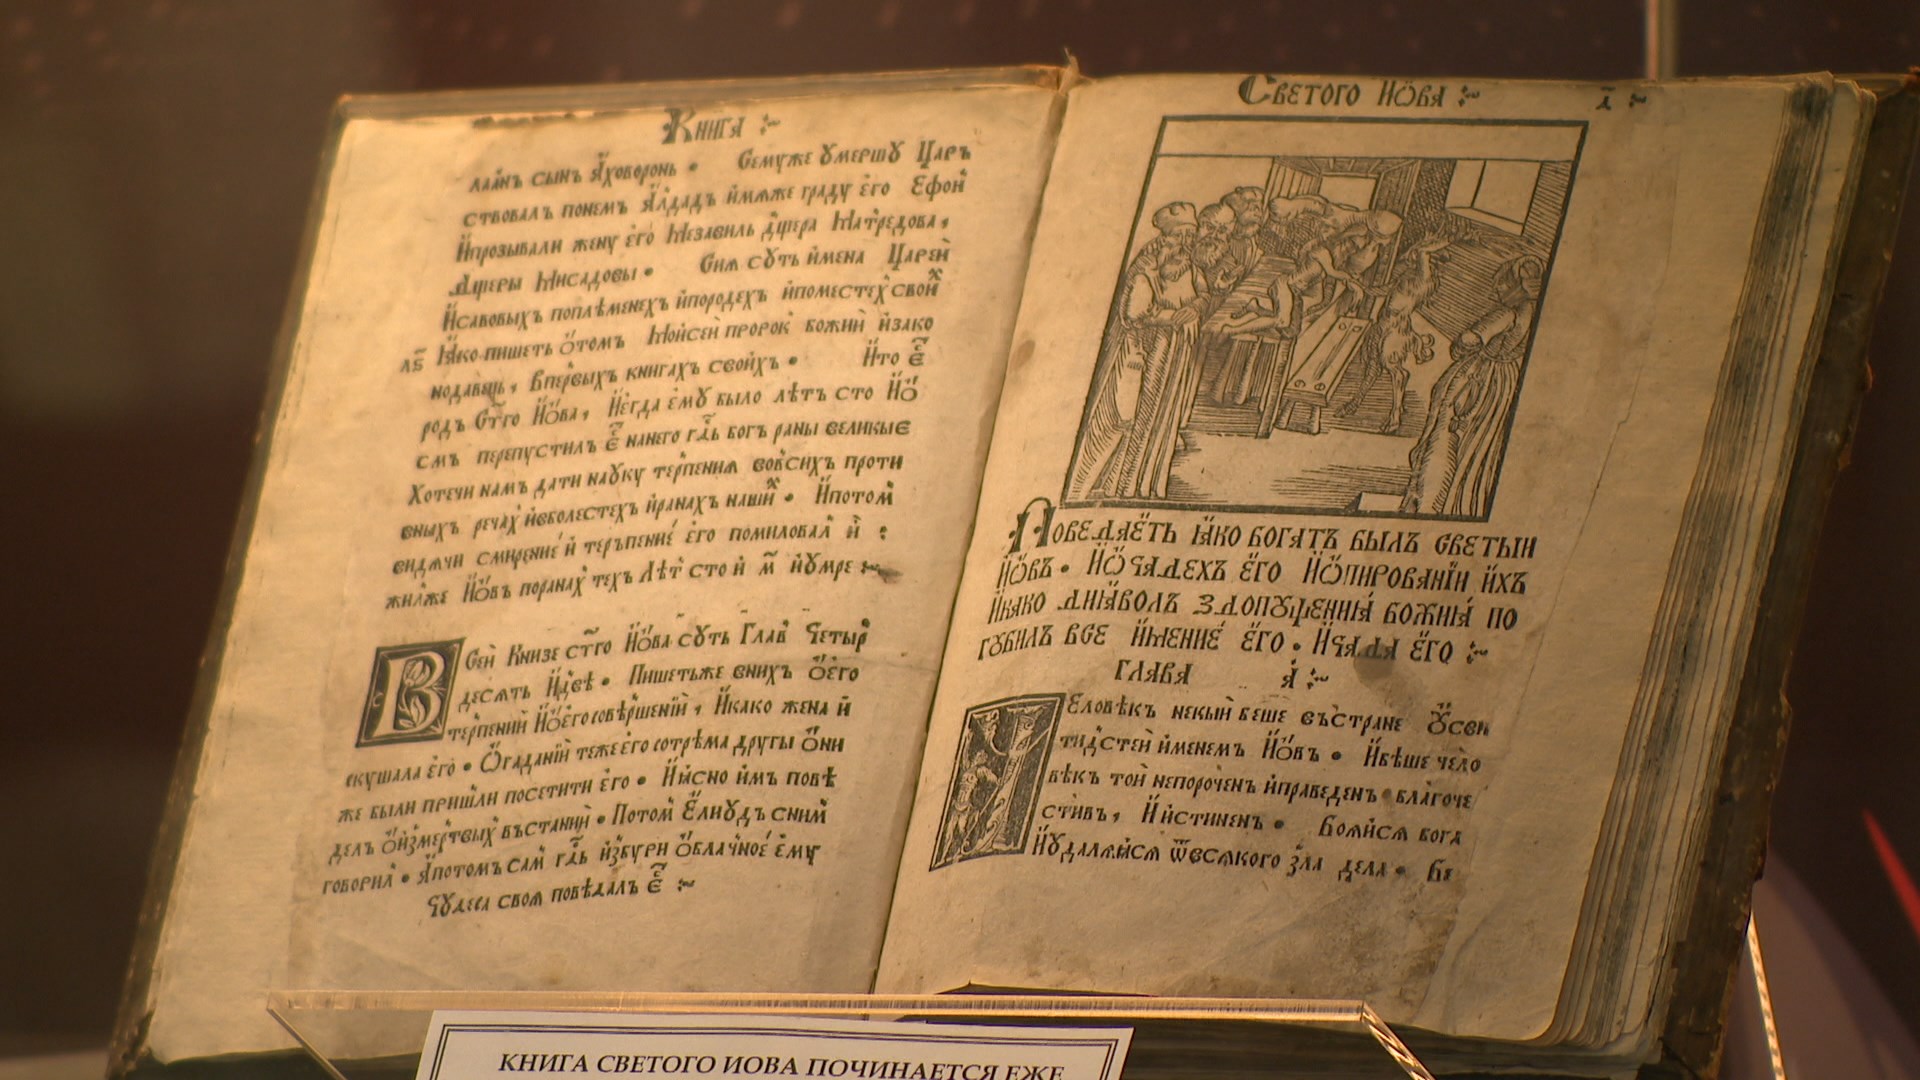 Книга :~
лаан̾ъ сынъ А҆ховоронь • Семуже ꙋмершꙋ Царь
ствовалъ понемъ А҆лдадъ и҆мѧже граду его Ефон̾
И҆прозывали жену е҆го Мезавиль дщера Матредова,
Дщеры Мисадовы • Сиꙗ сꙋть и҆мена Царей
И҆савовыхъ поплѣменехъ и҆породех̾ъ и҆поместех̾ свои҆х
Ꙗ҆ко пишеть ѡ҆томъ Мои҆сей пророк̾ божий и҆зако
нодавець, впервыхъ книгахъ свои҆хъ • И҆то е҃
родъ ст҃го И҆ѡ҆ва, И҆е҆гда е҆мꙋ было лѣтъ сто И҆ѡ҆
смъ перепустилъ е҃ нанего гдь богъ раны великые
Хотечи нам̾ъ дати наꙋку терпениꙗ вовсихъ проти
вных̾ъ речах̾ и҆вболестехъ и҆ранахъ наши҆х • И҆потом̾
видѧчи смирение и҆ терьпение е҆го помиловал̾ и҆
жилже И҆ѡ҆въ поранах̾ тех̾ъ лѣт̾ сто и҆ м҃ и҆ꙋмре :~
В Сей Книзе ст҃го И҆ѡ҆ва сꙋть Глав̾ Четыр̾
десѧть И҆две • Пишетьже вних̾ъ ѡ҆его
терпении҆ И҆ѡ҆его совѣршении҆, И҆како жена и҆
скушала его • Ѡ҆гадании҆ теже его сотрѣма другы ѡ҆ни
же были пришли посетити е҆го • И҆ꙗ҆сно и҆мъ повѣ
делъ ѡ҆измертвых̾ въстании҆ • Потом̾ Е҆лиꙋдъ сним̾
говорил • А҆потомъ сам̾ гдь и҆збури ѡ҆блачное е҆мꙋ
Чꙋдеса своꙗ повѣдалъ е҃ :~
Светого И҆ѡ҆ва :~
Поведаеть ꙗ҆ко богатъ былъ светыи
И҆ѡ҆въ • И҆ѡ҆чадехъ е҆го И҆ѡ҆пировании҆ и҆хъ
И҆како диꙗ҆волъ здопꙋщениꙗ божиꙗ по
губилъ все и҆мение е҆го • И҆чада е҆го :~
глава а҃ :~
Человѣкъ некый беше въстране ѹ҆сви
тидстей и҆менемъ И҆ѡ҆въ • И҆бѣше чело
вѣкъ той непороченъ и҆праведенъ • благоче
стивъ, И҆и҆стиненъ • Боꙗи҆сѧ бога
И҆ꙋдалꙗи҆сѧ ѿвсꙗкого зла дела • Бе
КНИГА СВЕТОГО ИОВА ПОЧИНАЕТСЯ ЕЖЕ